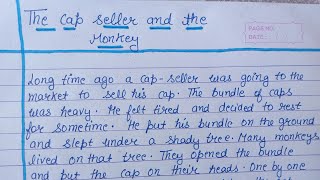 The Cap seller and the
Monkey
PAGE NO.
DATE
Long time ago a cap-seller was going to the
market to sell his cap. The bundle of caps
was heavy. He felt tired and decided to rest
for sometime. He put his bundle on the ground
and slept under a shady tree. Many monkeys
lived on that tree. They opened the bundle
and put the cap on their heads. One by one